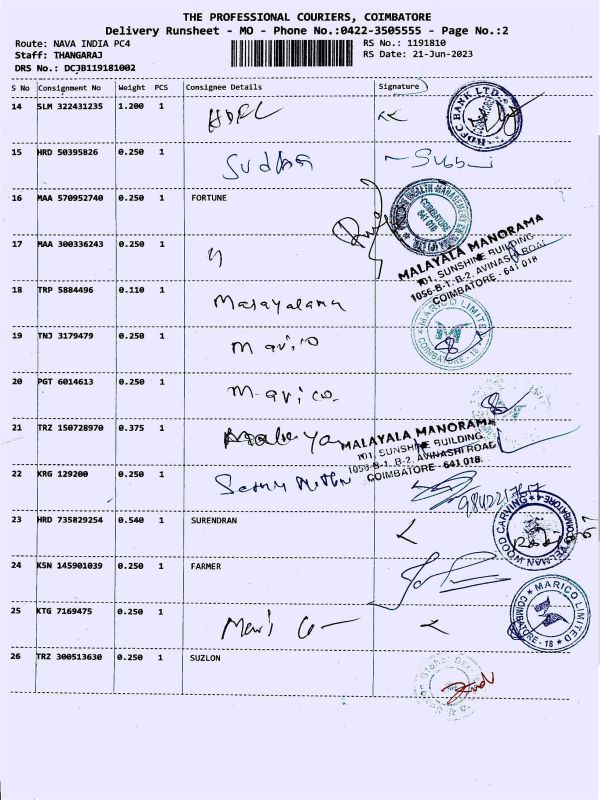 THE PROFESSIONAL COURIERS, COIMBATORE
Delivery Runsheet - MO - Phone No.:0422-3505555 - Page No.:2
Route: NAVA INDIA PC4 RS No.: 1191810
Staff: THANGARAJ RS Date: 21-Jun-2023
DRS No.: DCJB119181002
S No Consignment No Weight PCS Consignee Details Signature
14 SLM 322431235 1.200 1 HDFC
HDFC BANK LTD.
15 HRD 50395826 0.250 1 Sudha Subbi
16 MAA 570952740 0.250 1 FORTUNE
WEALTH MANAGEMENT
COIMBATORE
641 018
17 MAA 300336243 0.250 1 "
MALAYALA MANORAMA
101, SUNSHINE BUILDING
1056-B-1, B-2, AVINASHI ROAD
COIMBATORE - 641 018
18 TRP 5884496 0.110 1 Malayalama
MARICO LIMITED
COIMBATORE - 18
19 TNJ 3179479 0.250 1 Marico
20 PGT 6014613 0.250 1 Marico.
21 TRZ 150728970 0.375 1
MALAYALA MANORAMA
101, SUNSHINE BUILDING
1056-B-1, B-2, AVINASHI ROAD
COIMBATORE - 641 018.
22 KRG 129200 0.250 1
23 HRD 735829254 0.540 1 SURENDRAN
VEL-MAN WOOD CARVING
COIMBATORE-4
24 KSN 145901039 0.250 1 FARMER
25 KTG 7169475 0.250 1 Marico
MARICO LIMITED
COIMBATORE - 18
26 TRZ 300513630 0.250 1 SUZLON